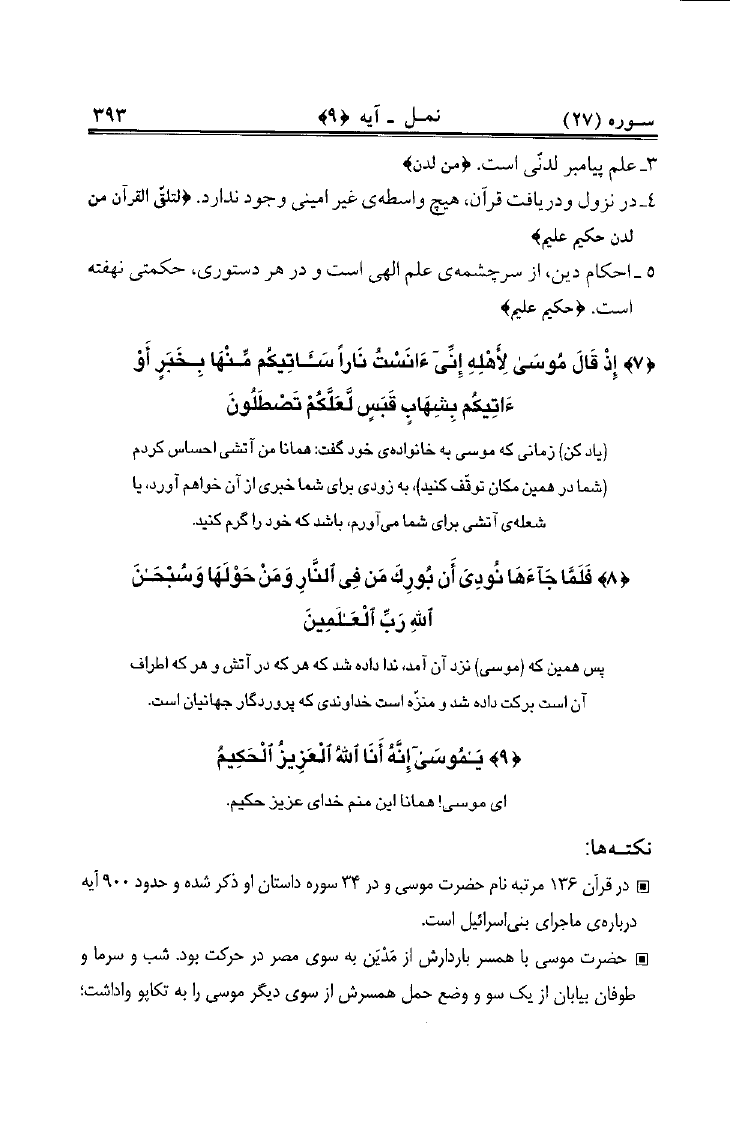 سوره (۲۷) نمل ـ آیه ﴿۹﴾ ۳۹۳
۳ـ علم پیامبر لدنّی است. ﴿من لدن﴾
٤ـ در نزول ودریافت قرآن، هیچ واسطه‌ی غیر امینی وجود ندارد. ﴿لتلقّ القرآن من
لدن حکیم علیم﴾
٥ ـ احکام دین، از سرچشمه‌ی علم الهی است و در هر دستوری، حکمتی نهفته
است. ﴿حکیم علیم﴾
﴿۷﴾ إِذْ قَالَ مُوسَىٰ لِأَهْلِهِ إِنِّىٓ ءَانَسْتُ نَاراً سَـَٔـاتِيكُم مِّنْهَا بِـخَبَرٍ أَوْ
ءَاتِيكُم بِشِهَابٍ قَبَسٍ لَّعَلَّكُمْ تَصْطَلُونَ
(یاد کن) زمانی که موسی به خانواده‌ی خود گفت: همانا من آتشی احساس کردم
(شما در همین مکان توقّف کنید)، به زودی برای شما خبری از آن خواهم آورد، یا
شعله‌ی آتشی برای شما می‌آورم، باشد که خود را گرم کنید.
﴿۸﴾ فَلَمَّا جَآءَهَا نُودِىَ أَن بُورِكَ مَن فِى ٱلنَّارِ وَمَنْ حَوْلَهَا وَسُبْحَـٰنَ
ٱللهِ رَبِّ ٱلْعَـٰلَمِينَ
پس همین که (موسی) نزد آن آمد، ندا داده شد که هر که در آتش و هر که اطراف
آن است برکت داده شد و منزّه است خداوندی که پروردگار جهانیان است.
﴿۹﴾ يَـٰمُوسَىٰٓ إِنَّهُ أَنَا ٱللهُ ٱلْعَزِيزُ ٱلْحَكِيمُ
ای موسی! همانا این منم خدای عزیز حکیم.
نکته‌ها:
▣ در قرآن ۱۳۶ مرتبه نام حضرت موسی و در ۳۴ سوره داستان او ذکر شده و حدود ۹۰۰ آیه
درباره‌ی ماجرای بنی‌اسرائیل است.
▣ حضرت موسی با همسر باردارش از مَدْیَن به سوی مصر در حرکت بود. شب و سرما و
طوفان بیابان از یک سو و وضع حمل همسرش از سوی دیگر موسی را به تکاپو واداشت؛